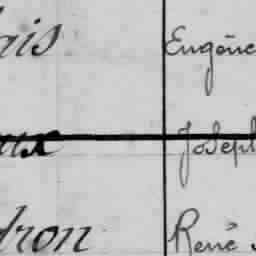 ais Eugène
aux Joseph
dron René